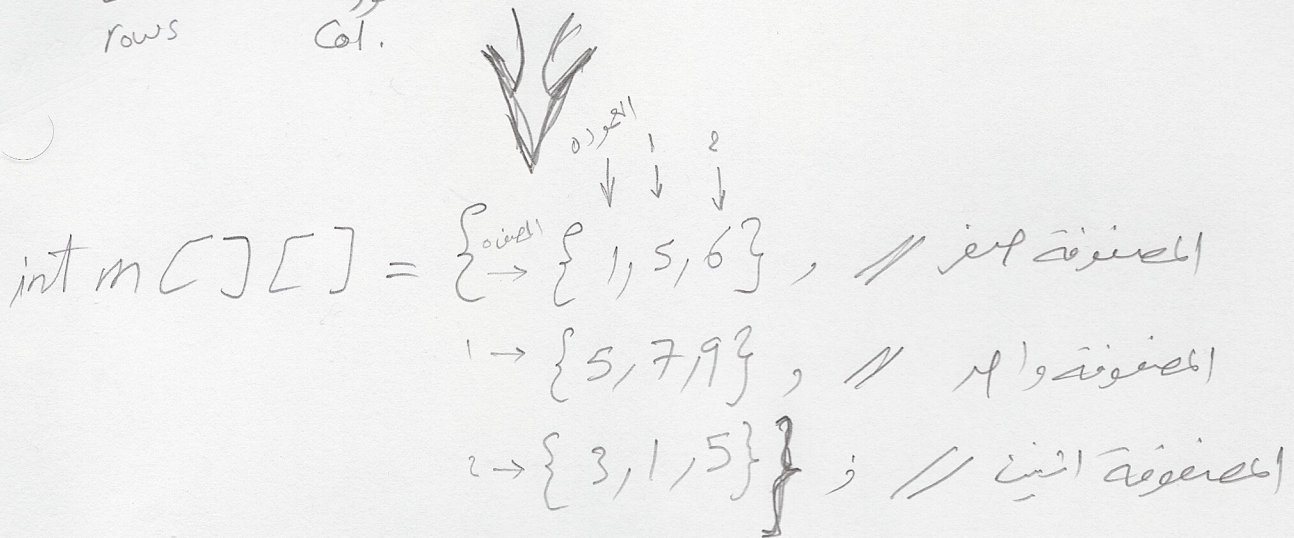 rows Col.
العمود 0 1 2
int m [] [] = { المصفوفة → { 1, 5, 6 } , // المصفوفة صفر
1 → { 5, 7, 9 } , // المصفوفة واحد
2 → { 3, 1, 5 } } ; // المصفوفة اثنين